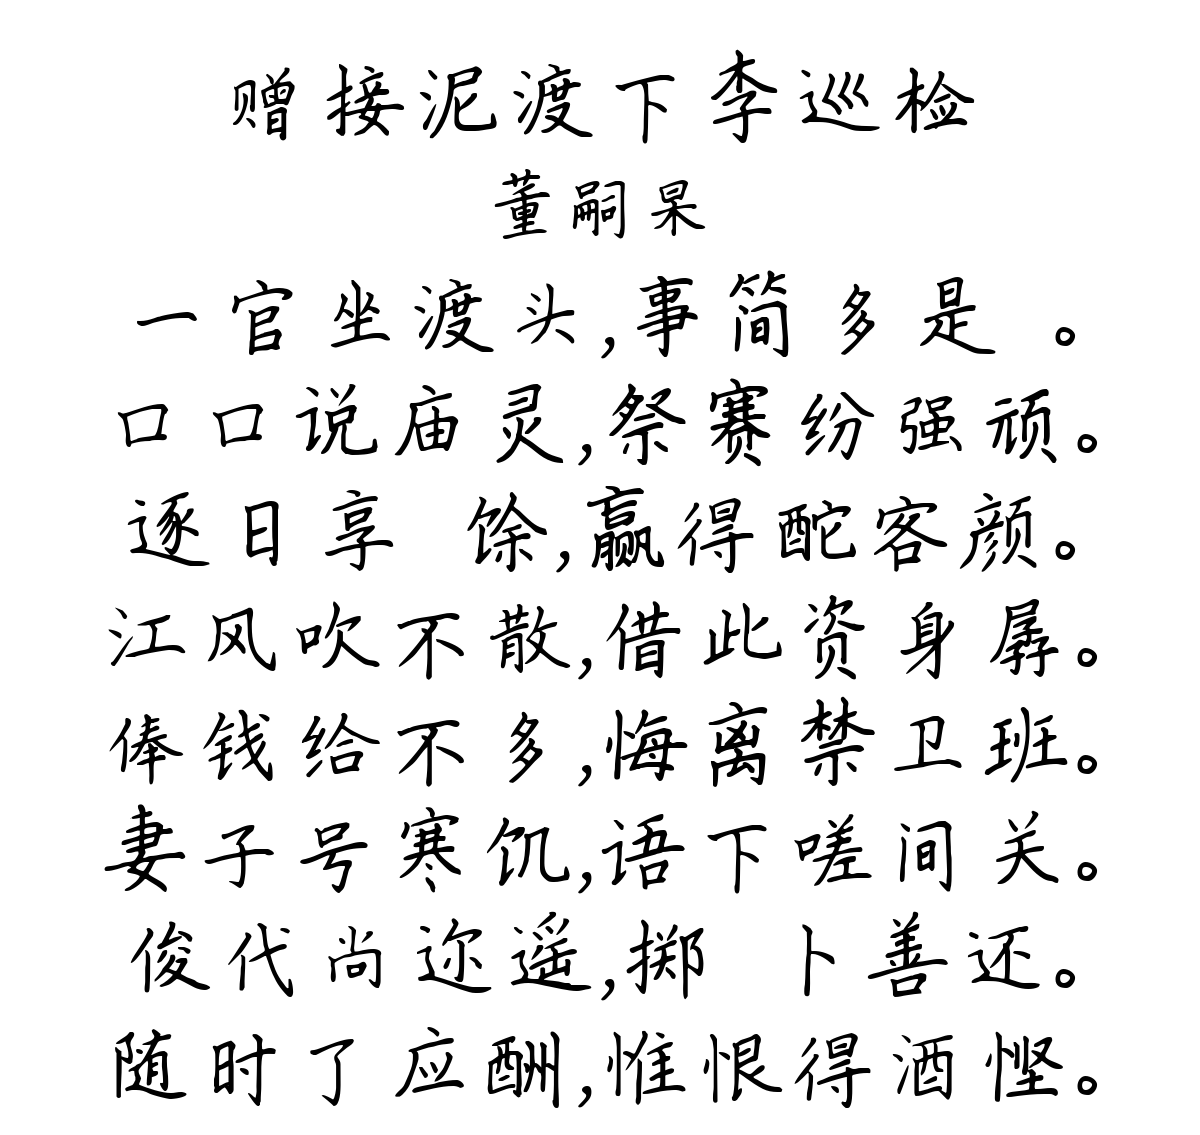 赠接泥渡下李巡检
董嗣杲
一官坐渡头,事简多是 。
口口说庙灵,祭赛纷强顽。
逐日享 馀,赢得酡客颜。
江风吹不散,借此资身孱。
俸钱给不多,悔离禁卫班。
妻子号寒饥,语下嗟间关。
俊代尚迩遥,掷 卜善还。
随时了应酬,惟恨得酒悭。